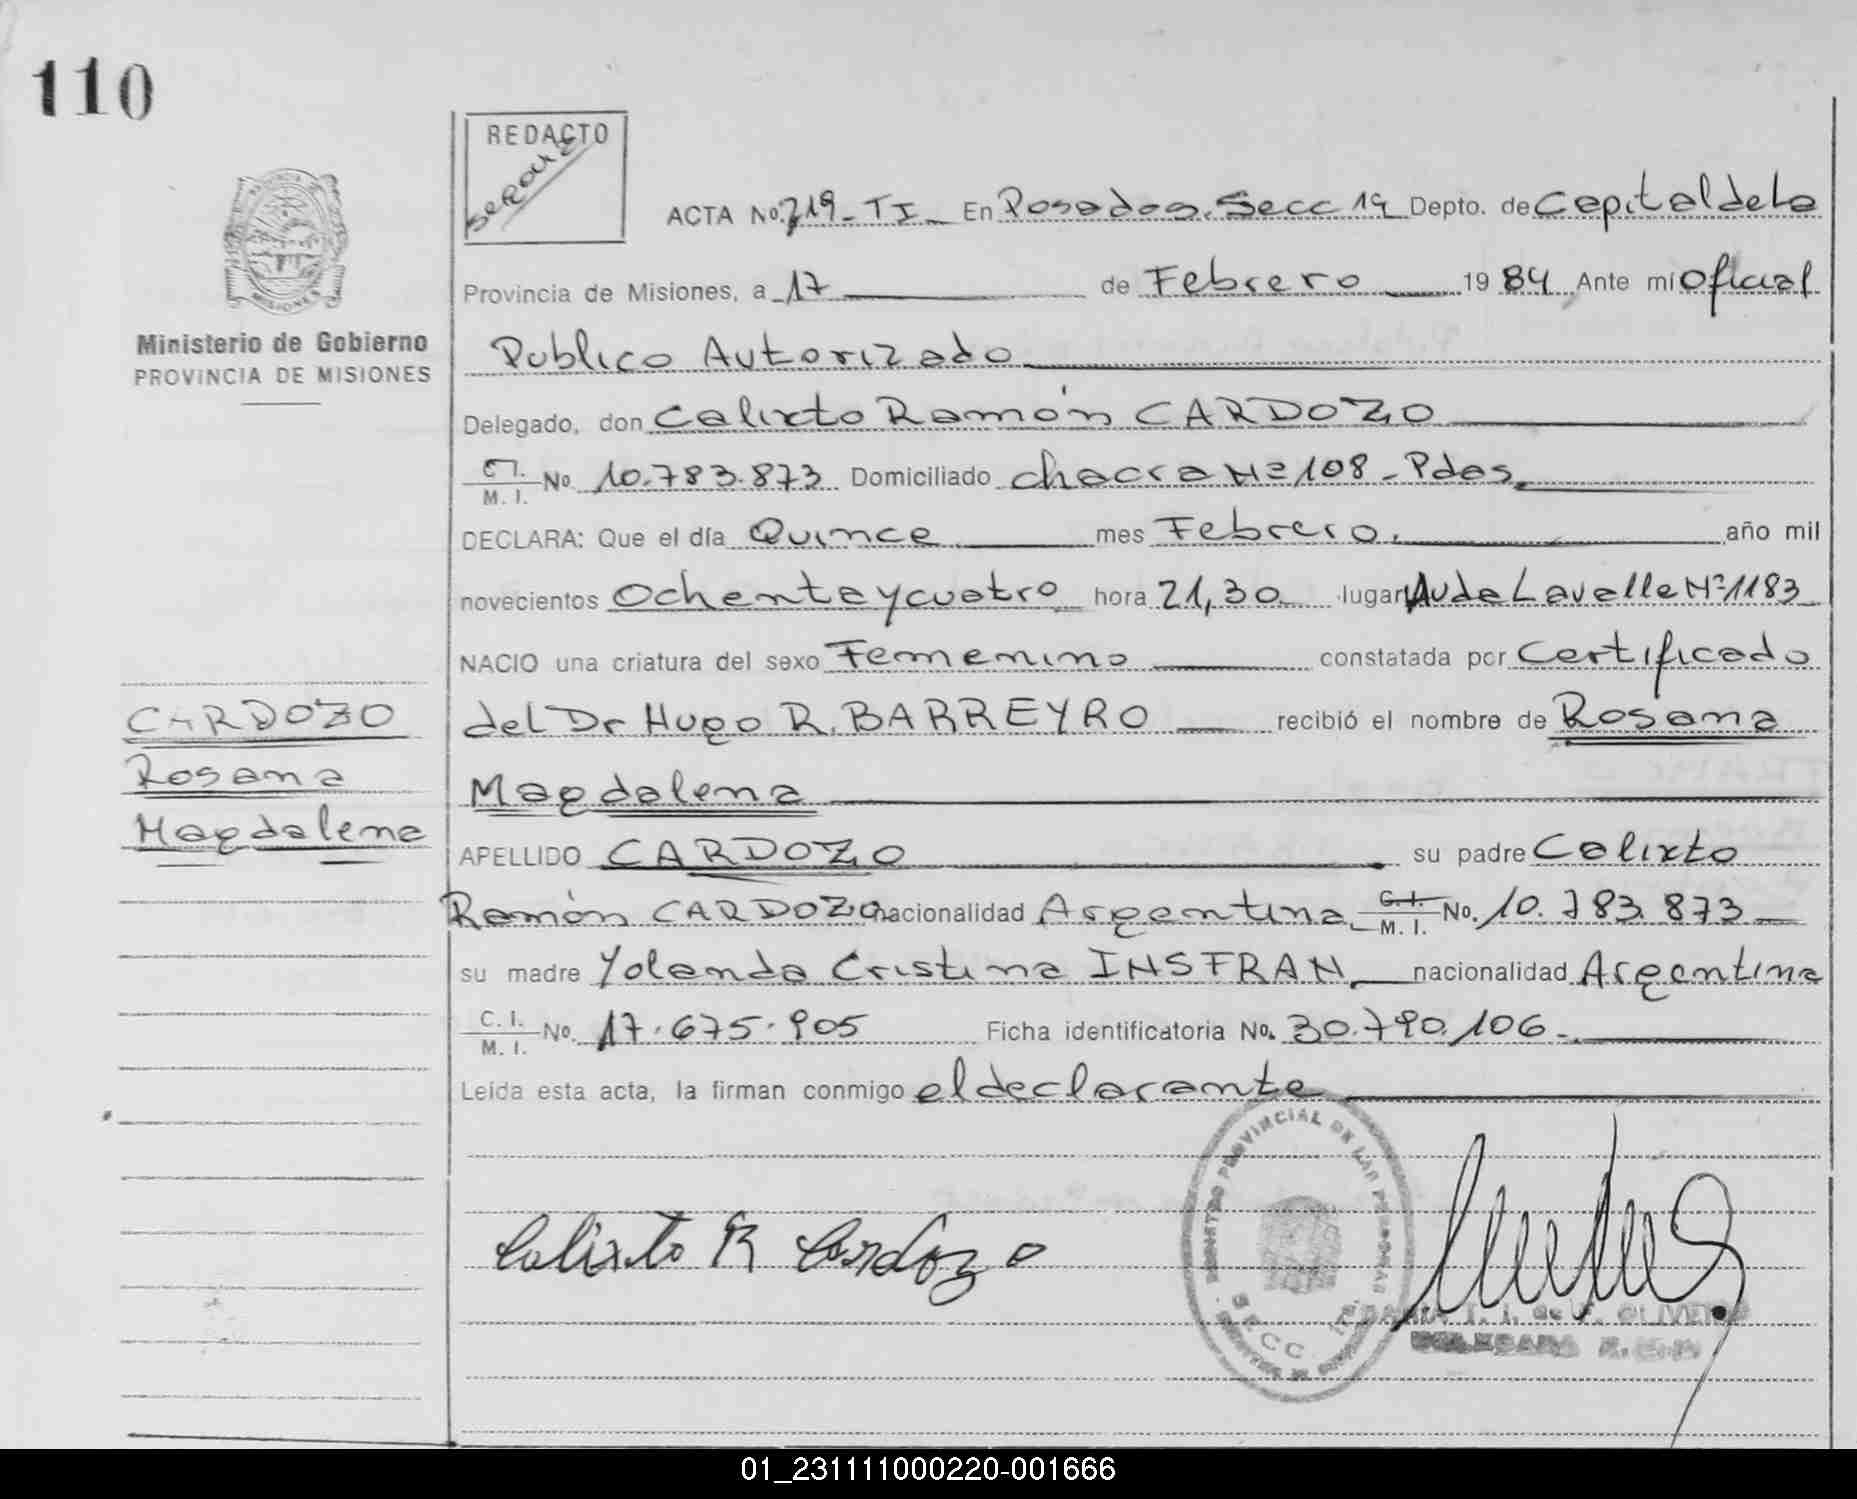 110
REDACTO
ACTA No. 219-TI En Posadas. Secc 1ª Depto. de Capital de La
Provincia de Misiones, a 17 de Febrero 1984 Ante mí Oficial
Ministerio de Gobierno
PROVINCIA DE MISIONES
Publico Autorizado
Delegado, don Calixto Ramón CARDOZO
C.I.
M. I. No 10.783.873 Domiciliado chacra Nº 108 - Pdas.
DECLARA: Que el día Quince mes Febrero. año mil
novecientos Ochenta y cuatro hora 21,30 lugar Av de Lavalle Nº 1183
NACIO una criatura del sexo Femenino constatada por Certificado
CARDOZO
Rosana
Magdalena
del Dr Hugo R. BARREYRO recibió el nombre de Rosana
Magdalena
APELLIDO CARDOZO su padre Calixto
Ramón CARDOZO nacionalidad Argentina C.I.
M. I. No. 10.783.873
su madre Yolanda Cristina INSFRAN, nacionalidad Argentina
C. I.
M. I. No. 17.675.905 Ficha identificatoria No. 30.790.106.
Leída esta acta, la firman conmigo el declarante
Calixto R Cardozo
REGISTRO PROVINCIAL DE LAS PERSONAS
SECC 1ra.
01_231111000220-001666